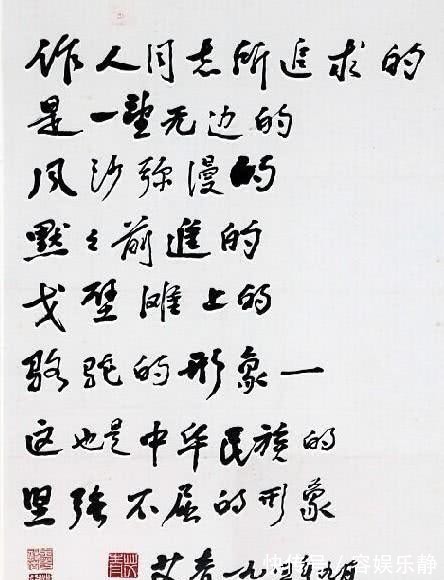 作人同志所追求的
是一望无边的
风沙弥漫的
默々前進的
戈壁滩上的
骆驼的形象一
这也是中华民族的
坚强不屈的形象
艾青一九
快传号/容娱乐静